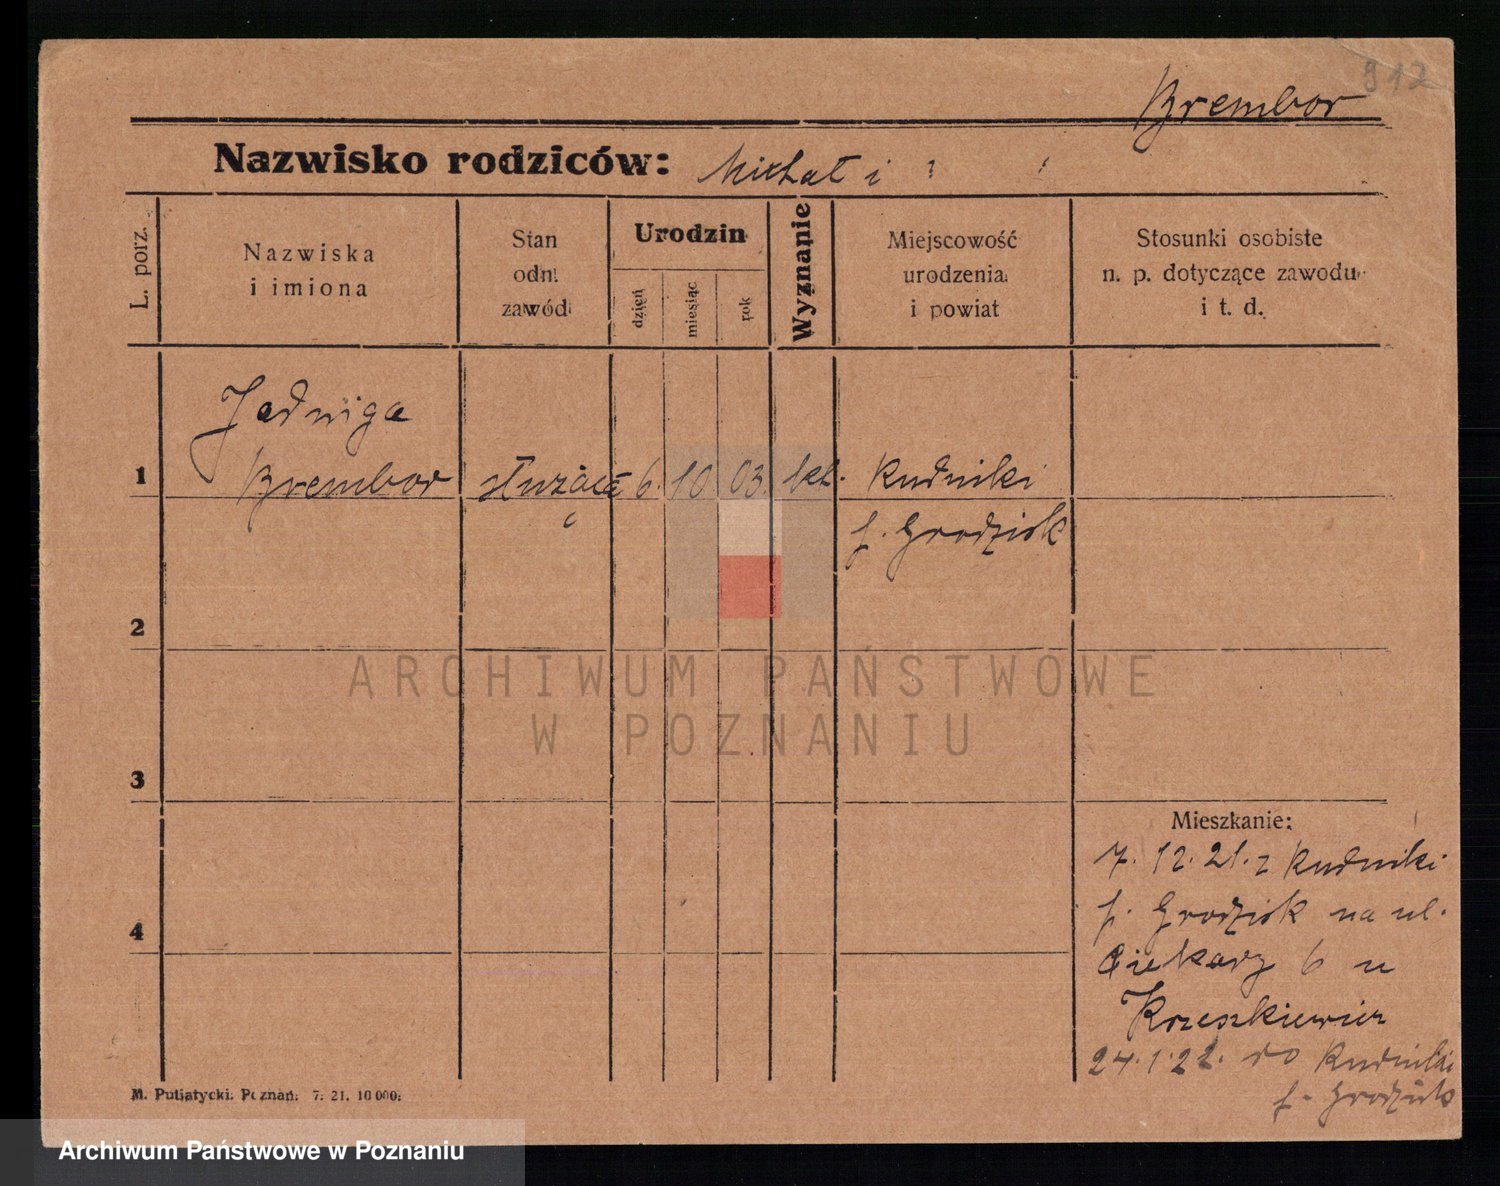 912
Brembor
Nazwisko rodziców: Michał i ?
L. porz.
Nazwiska
i imiona
Stan
odn.
zawód
Urodzin
dzień
miesiąc
rok
Wyznanie
Miejscowość
urodzenia
i powiat
Stosunki osobiste
n. p. dotyczące zawodu
i t. d.
Jadwiga
1 Brembor służąca 6. 10 03. kat. Rudniki
p. Grodzisk
2
3
4
Mieszkanie:
7. 12. 21. z Rudniki
p. Grodzisk na ul.
6 u
Krzeszkiewicz
24.1.22. do Rudniki
p. Grodzisk
M. Putiatycki. Poznań. 7. 21. 10 000.
ARCHIWUM PAŃSTWOWE
W POZNANIU
Archiwum Państwowe w Poznaniu